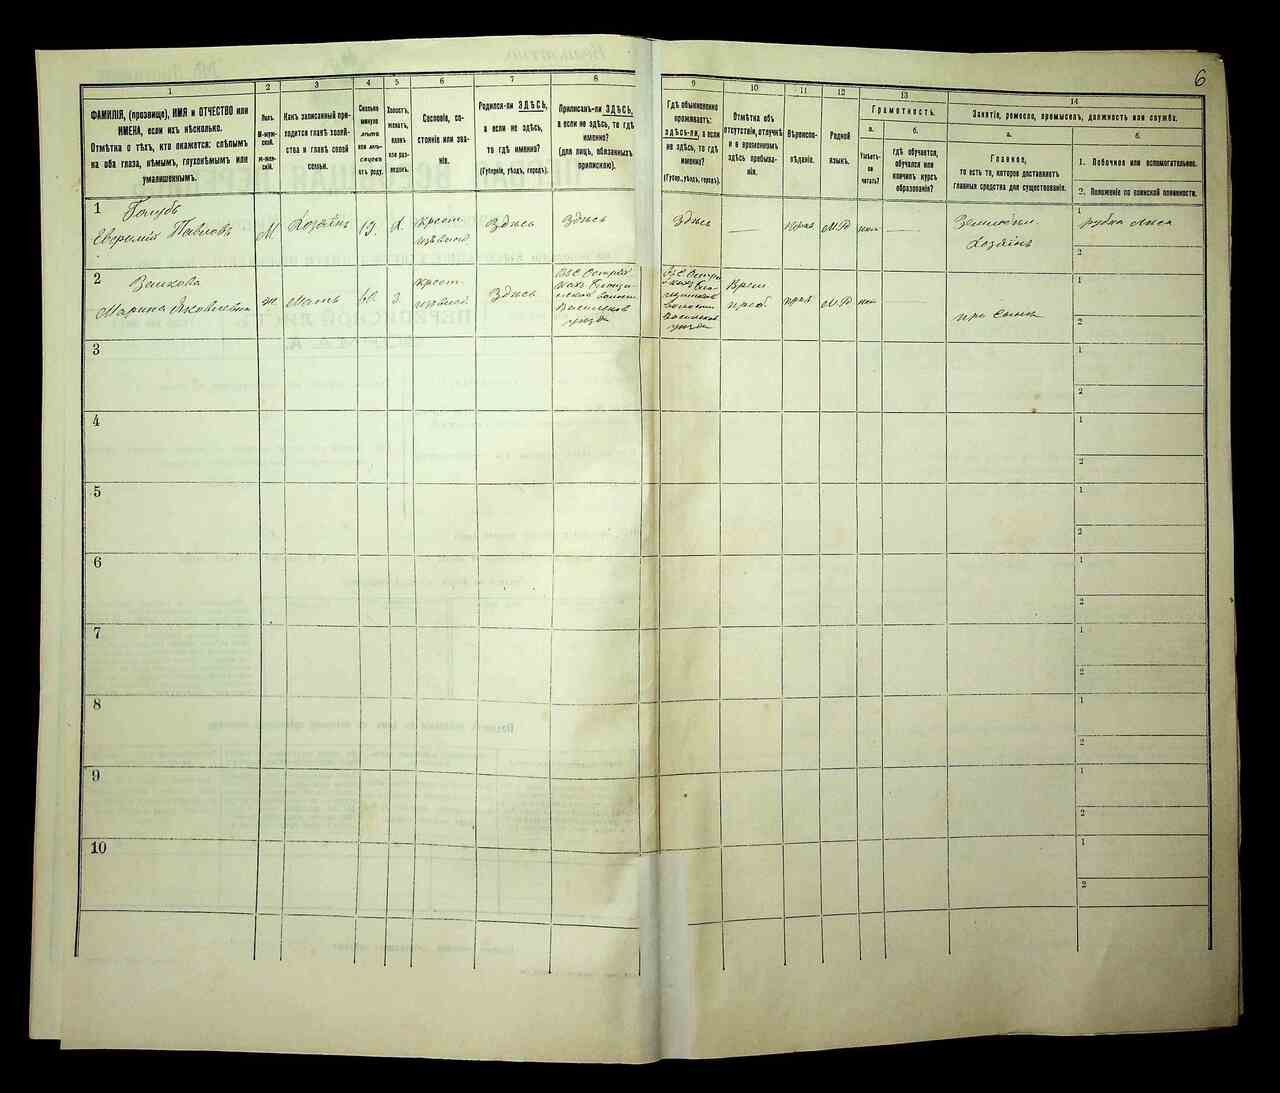 6
1
2
3
4
5
6
7
8
9
10
11
12
13
14
ФАМИЛІЯ, (прозвище), ИМЯ и ОТЧЕСТВО или
ИМЕНА, если ихъ нѣсколько.
Отмѣтка о тѣхъ, кто окажется: слѣпымъ
на оба глаза, нѣмымъ, глухонѣмымъ или
умалишеннымъ.
Полъ.
М-муж-
ской.
Ж-жен-
скій.
Какъ записанный при-
ходится главѣ хозяй-
ства и главѣ своей
семьи.
Сколько
минуло
лѣтъ
или мѣ-
сяцевъ
отъ роду.
Холостъ,
женатъ,
вдовъ
или раз-
веденъ.
Сословіе, со-
стояніе или зва-
ніе.
Родился-ли ЗДѢСЬ,
а если не здѣсь,
то гдѣ именно?
(Губернія, уѣздъ, городъ).
Приписанъ-ли ЗДѢСЬ,
а если не здѣсь, то гдѣ
именно?
(для лицъ, обязанныхъ
припискою).
Гдѣ обыкновенно
проживаетъ:
здѣсь-ли, а если
не здѣсь, то гдѣ
именно?
(Губер., уѣздъ, городъ).
Отмѣтка объ
отсутствіи, отлучкѣ
и о временномъ
здѣсь пребыва-
ніи.
Вѣроиспо-
вѣданіе.
Родной
языкъ.
Грамотность.
а.
б.
Умѣетъ-
ли
читать?
гдѣ обучается,
обучался или
кончилъ курсъ
образованія?
Занятіе, ремесло, промыселъ, должность или служба.
а.
б.
Главное,
то есть то, которое доставляетъ
главныя средства для существованія.
1. Побочное или вспомогательное.
2. Положеніе по воинской повинности.
1
Голубъ
Евфимій Павловъ
М
Хозяинъ
19.
Х.
Крест.
Здѣсь
Здѣсь
Здѣсь
—
прав
М.Р
нет
—
Хозяинъ
1
рубка лѣса
2
2
Марина Яковлевна
ж.
Мать
60.
крест.
Здѣсь
Васильков
уѣзда
волости
Васильков
уѣзда
Врем.
преб.
прав
М.Р
нет
при сынѣ
1
2
3
1
2
4
1
2
5
1
2
6
1
2
7
1
2
8
1
2
9
1
2
10
1
2